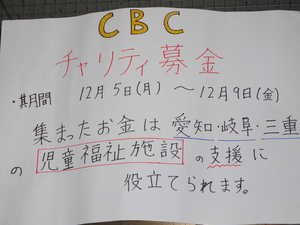 CBC
チャリティ募金
・期間 12月5日(月) ～12月9日(金)
集まったお金は 愛知・岐阜・三重
の 児童福祉施設 の支援に
役立てられます。